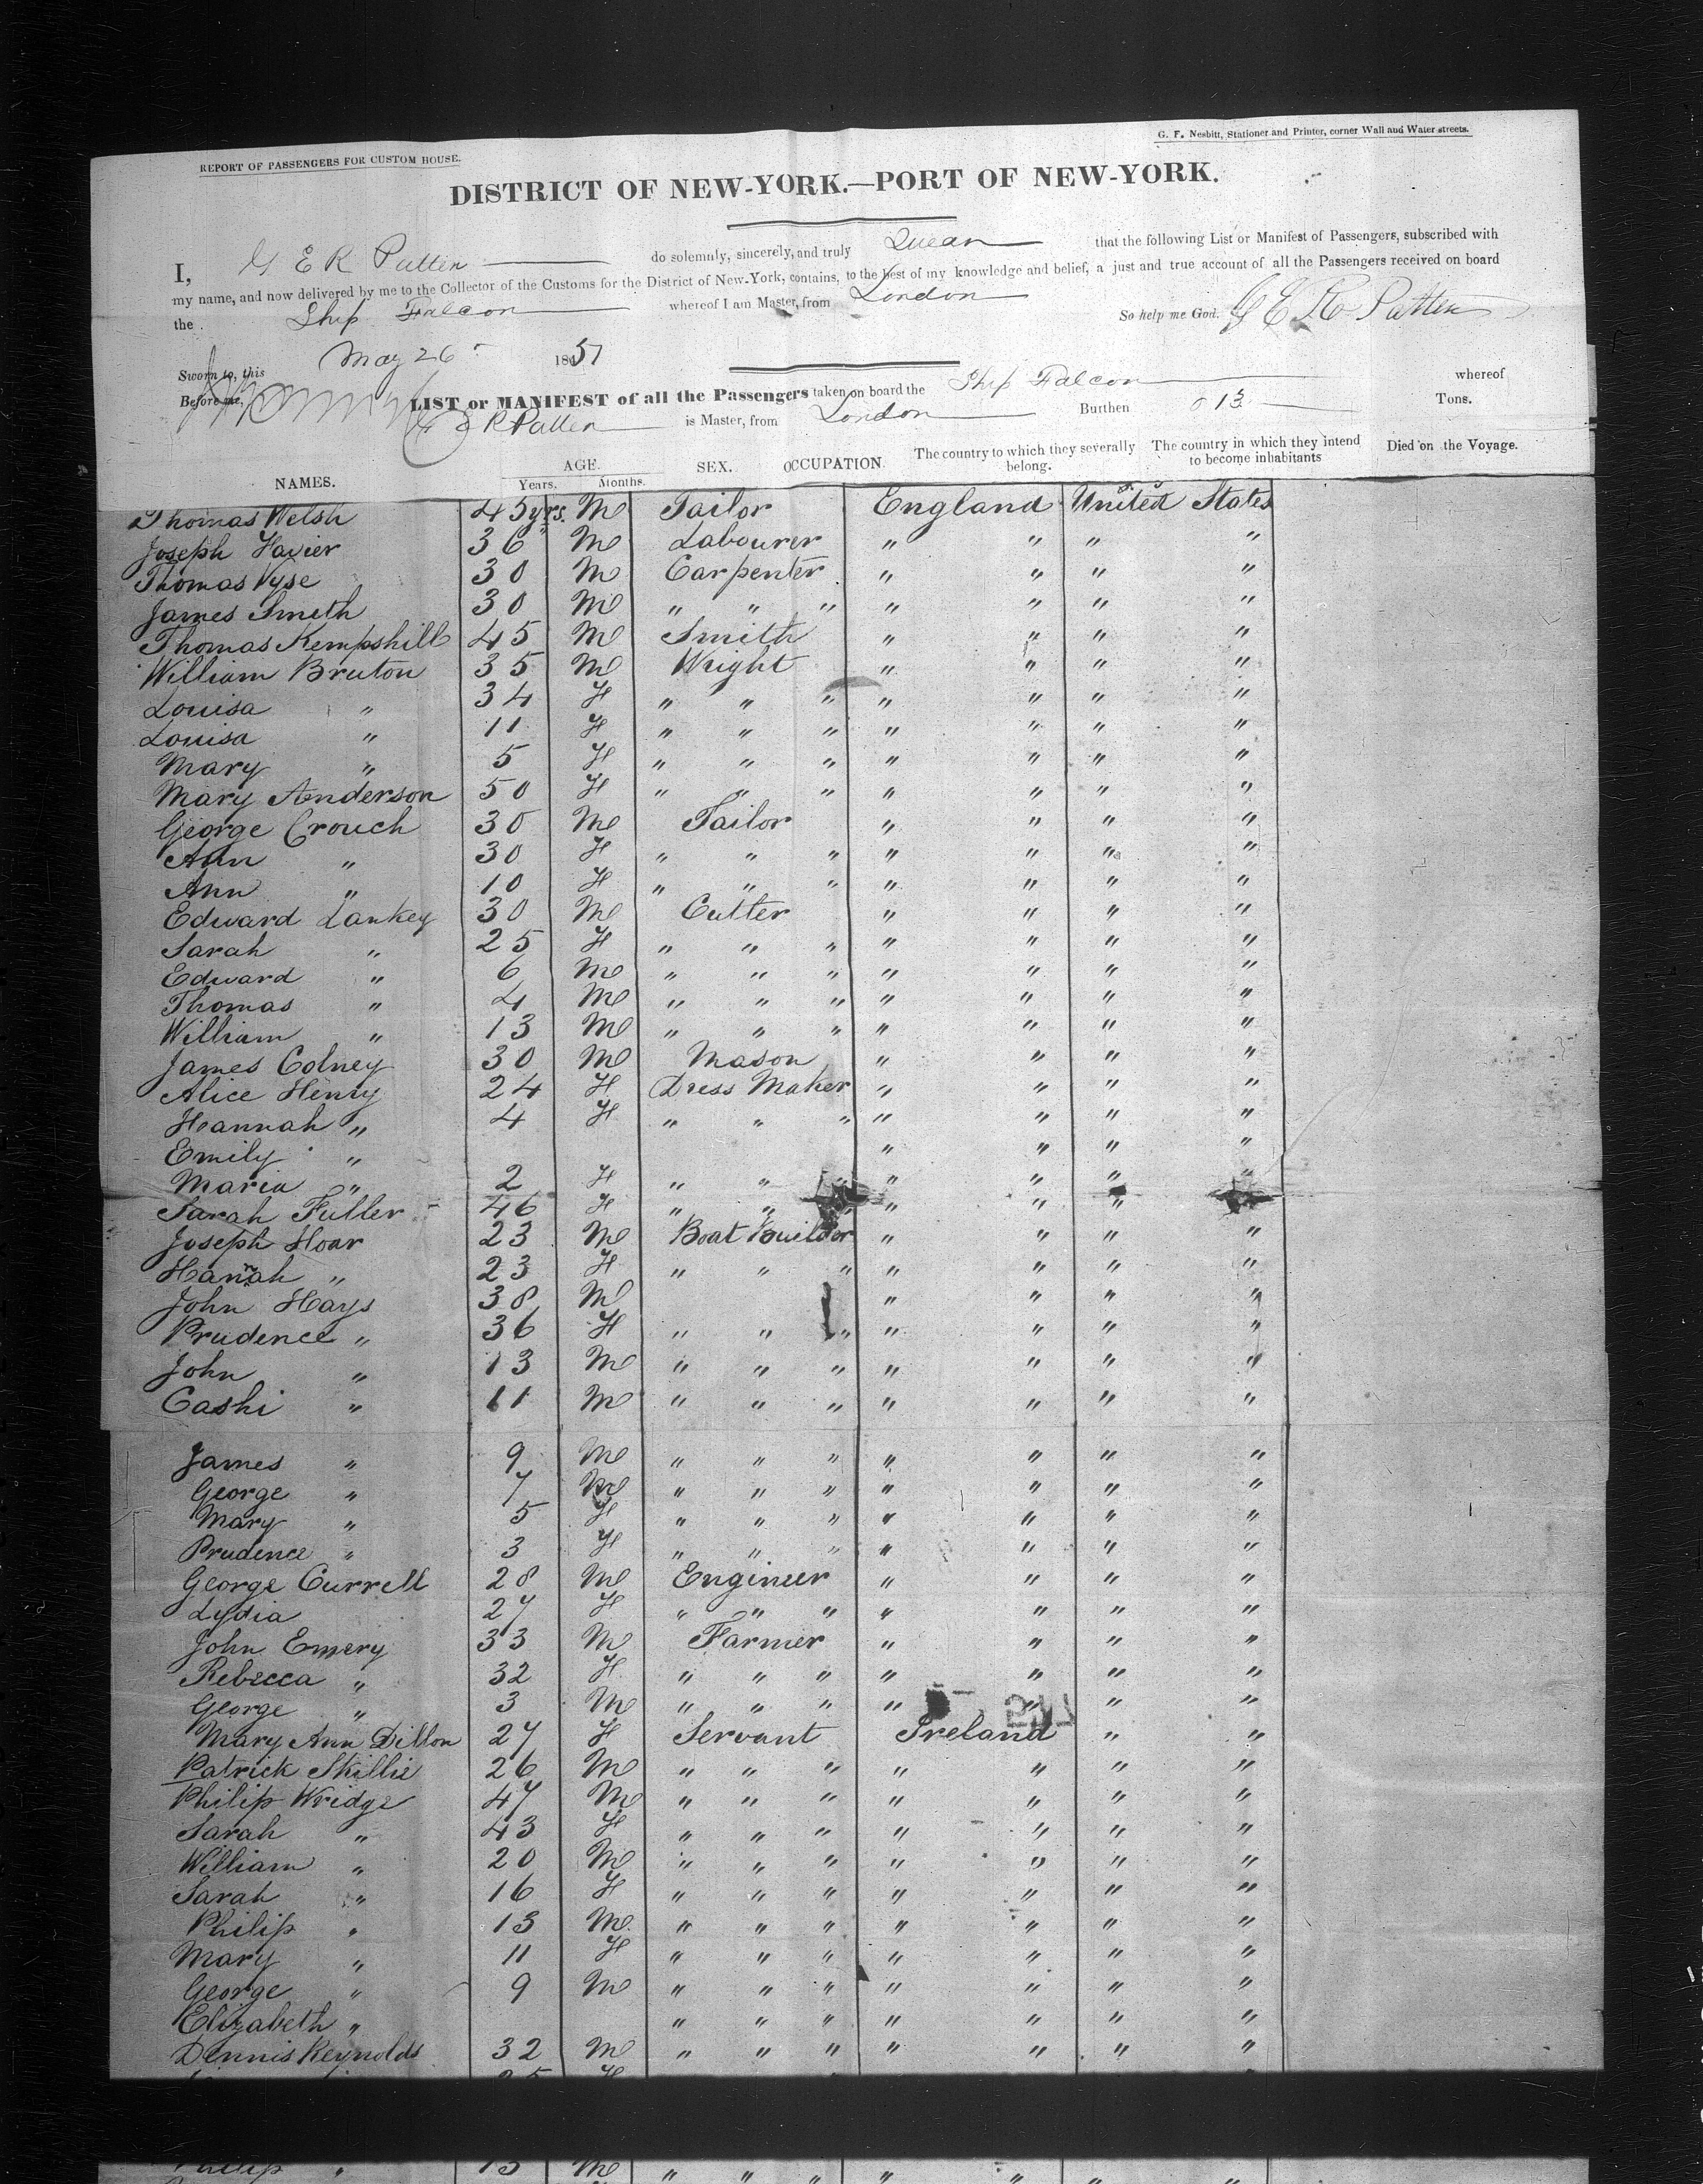 G. F. Nesbitt, Stationer and Printer, corner Wall and Water streets.
REPORT OF PASSENGERS FOR CUSTOM HOUSE.
DISTRICT OF NEW-YORK.—PORT OF NEW-YORK.
I, G E R Patten do solemnly, sincerely, and truly Swear that the following List or Manifest of Passengers, subscribed with
my name, and now delivered by me to the Collector of the Customs for the District of New-York, contains, to the best of my knowledge and belief, a just and true account of all the Passengers received on board
the Ship Falcon whereof I am Master, from London So help me God. G E R Patten
Sworn to, this May 26 1851
Before me,
LIST or MANIFEST of all the Passengers taken on board the Ship Falcon whereof
G E R Patten is Master, from London Burthen 813 Tons.
NAMES. AGE. Years. Months. SEX. OCCUPATION. The country to which they severally belong. The country in which they intend to become inhabitants Died on the Voyage.
Thomas Welsh 45 yrs. M Tailor England United States
Joseph Havier 36 " M Labourer " " " "
Thomas Vyse 30 M Carpenter " " " "
James Smeth 30 M " " " " " " "
Thomas Kempshill 45 M Smith " " " "
William Bruton 35 M Wright " " " "
Louisa " 34 F " " " " " " "
Louisa " 11 F " " " " " " "
Mary " 5 F " " " " " " "
Mary Anderson 50 F " " " " " " "
George Crouch 30 M Tailor " " " "
Ann " 30 F " " " " " " "
Ann " 10 F " " " " " " "
Edward Lankey 30 M Cutter " " " "
Sarah " 25 F " " " " " " "
Edward " 6 M " " " " " " "
Thomas " 4 M " " " " " " "
William " 13 M " " " " " " "
James Colney 30 M Mason " " " "
Alice Henry 24 F Dress Maker " " " "
Hannah " 4 F " " " " " " "
Emily " " " " "
Maria " 2 F " " " " " "
Sarah Fuller 46 F " " " " "
Joseph Hoar 23 M Boat Builder " " " "
Hannah " 23 F " " " " " " "
John Hays 38 M " " " "
Prudence " 36 F " " " " " " "
John " 13 M " " " " " " "
Cashi " 11 M " " " " " " "
James " 9 M " " " " " " "
George " 7 M " " " " " " "
Mary " 5 F " " " " " " "
Prudence " 3 F " " " " " " "
George Currell 28 M Engineer " " " "
Lydia 27 F " " " " " " "
John Emery 33 M Farmer " " " "
Rebecca " 32 F " " " " " " "
George " 3 M " " " " " " "
Mary Ann Dillon 27 F Servant Ireland " "
Patrick Skillie 26 M " " " " " " "
Philip Wridge 47 M " " " " " " "
Sarah " 43 F " " " " " " "
William " 20 M " " " " " " "
Sarah " 16 F " " " " " " "
Philip " 13 M " " " " " " "
Mary " 11 F " " " " " " "
George " 9 M " " " " " " "
Elizabeth " " " " " " " "
Dennis Reynolds 32 M " " " " " " "
25 F
Philip " 13 M " " " " " " "